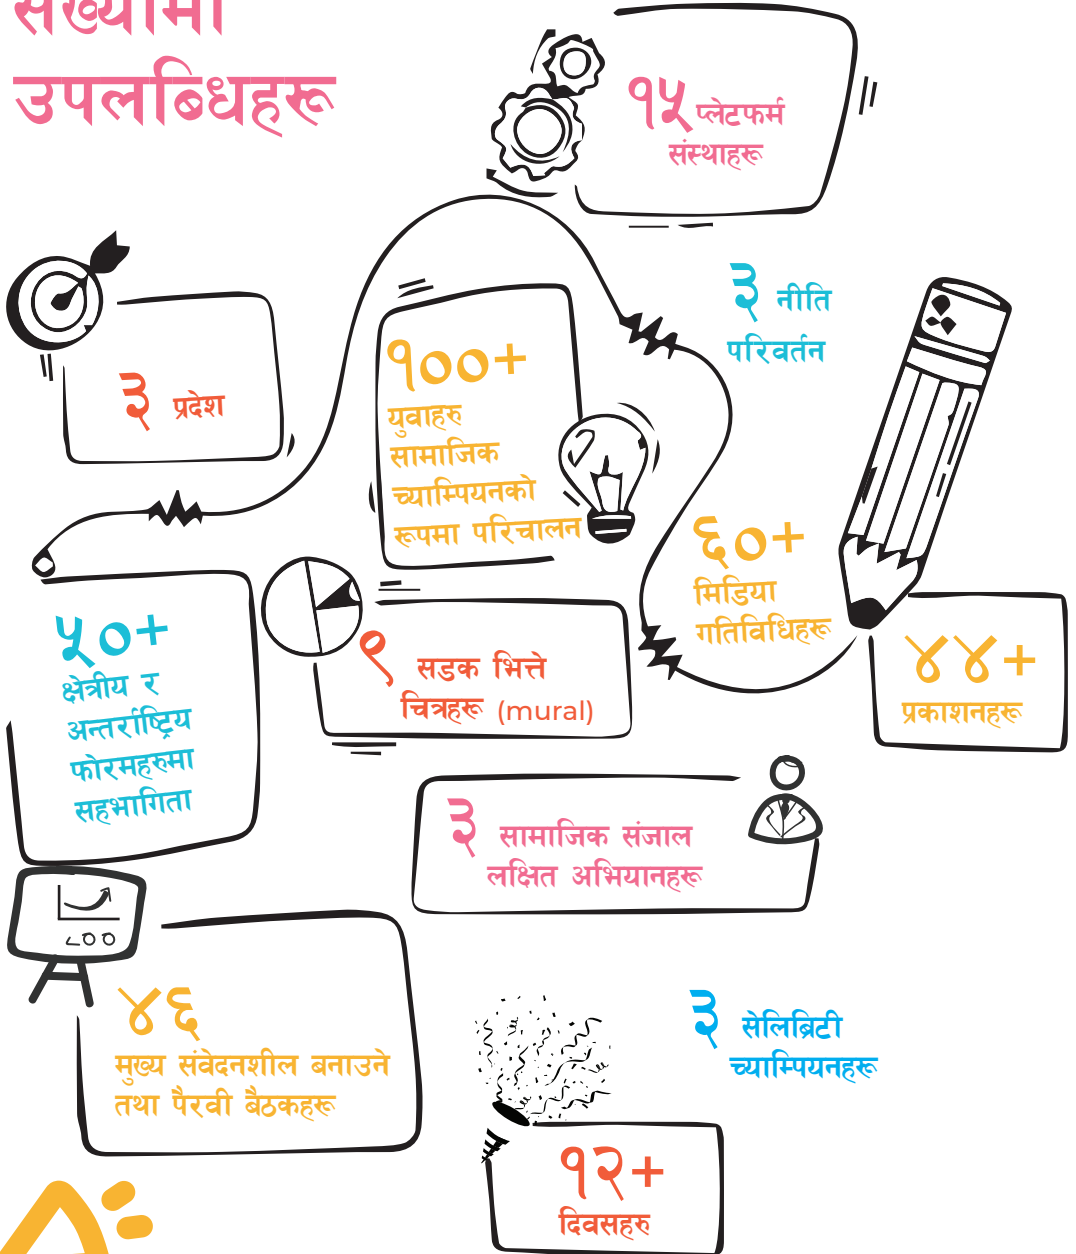 संख्यामा
उपलब्धिहरू
१५ प्लेटफर्म
संस्थाहरू
३ नीति
परिवर्तन
३ प्रदेश
१००+
युवाहरु
सामाजिक
च्याम्पियनको
रूपमा परिचालन
६०+
मिडिया
गतिविधिहरू
५०+
क्षेत्रीय र
अन्तर्राष्ट्रिय
फोरमहरुमा
सहभागिता
९ सडक भित्ते
चित्रहरू (mural)
४४+
प्रकाशनहरू
३ सामाजिक संजाल
लक्षित अभियानहरू
४६
मुख्य संवेदनशील बनाउने
तथा पैरवी बैठकहरू
३ सेलिब्रिटी
च्याम्पियनहरू
१२+
दिवसहरु